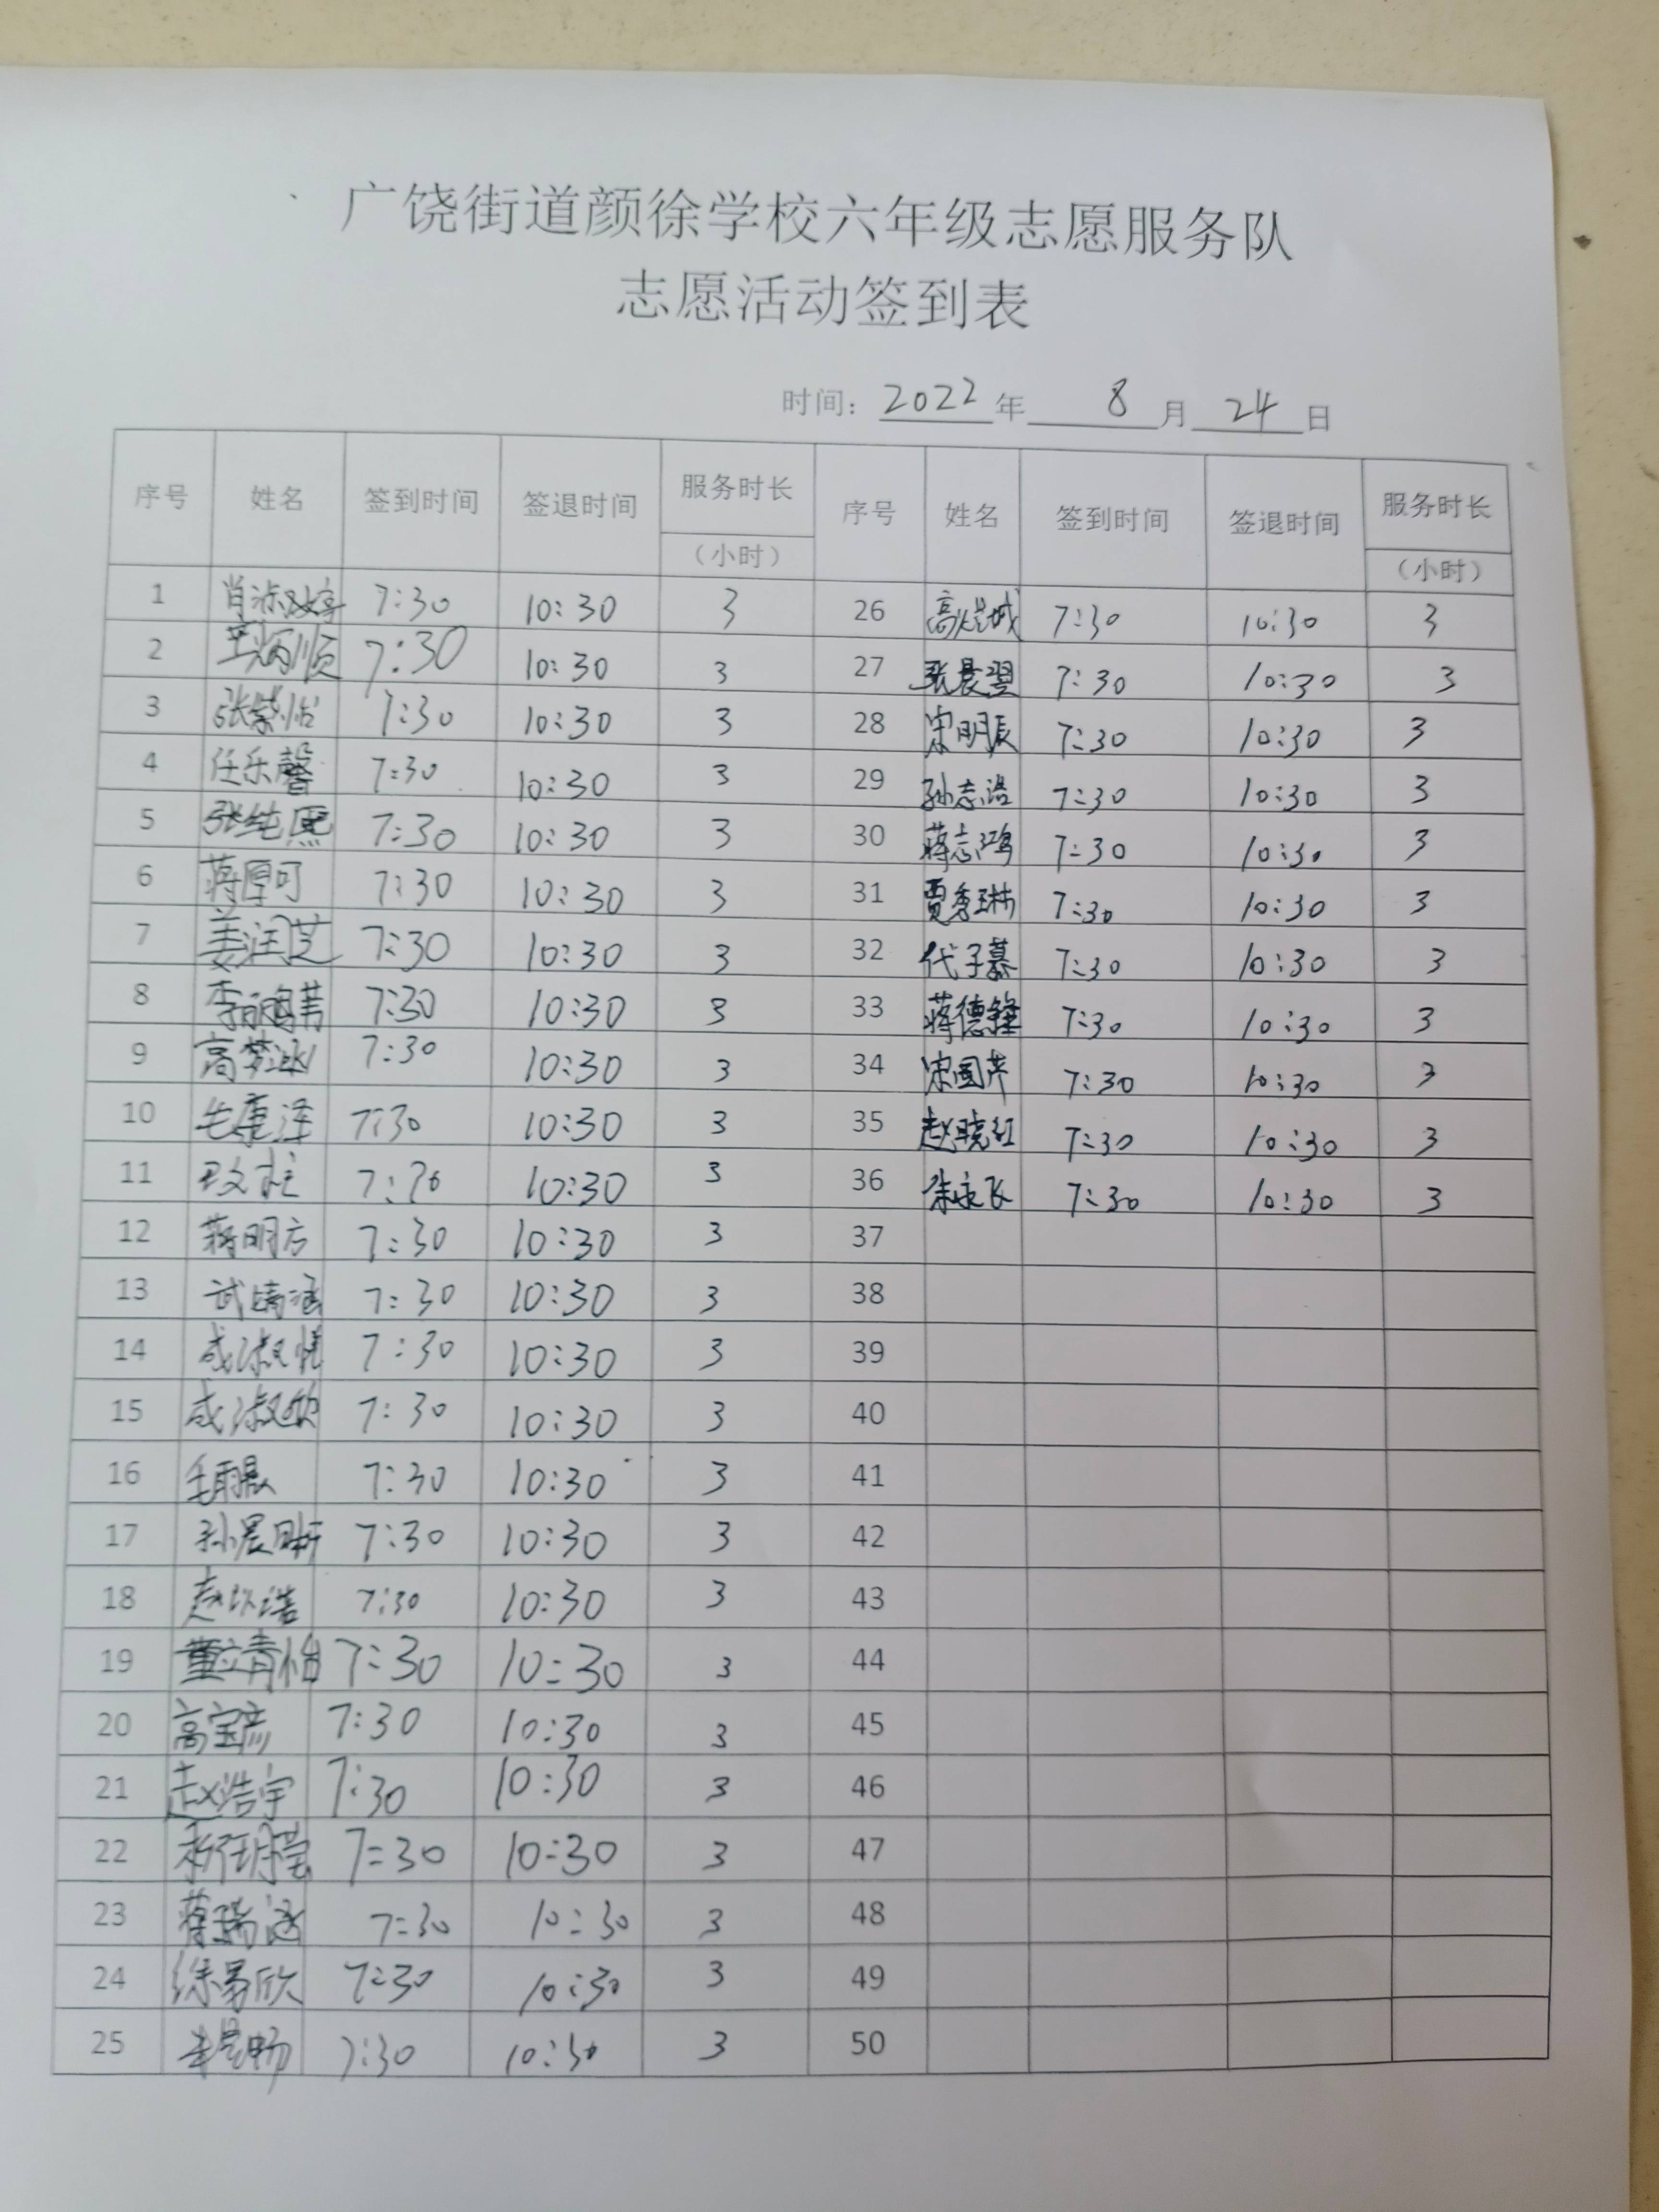 广饶街道颜徐学校六年级志愿服务队
志愿活动签到表
时间：2022年 8月24日
序号 姓名 签到时间 签退时间 服务时长（小时） 序号 姓名 签到时间 签退时间 服务时长（小时）
1 7:30 10:30 3 26 高煜城 7:30 10:30 3
2 王炳顺 7:30 10:30 3 27 张晨翌 7:30 10:30 3
3 张紫怡 7:30 10:30 3 28 宋明辰 7:30 10:30 3
4 任乐馨 7:30 10:30 3 29 孙志浩 7:30 10:30 3
5 张纯熙 7:30 10:30 3 30 蒋志鸿 7:30 10:30 3
6 蒋厚可 7:30 10:30 3 31 贾秀琳 7:30 10:30 3
7 姜润芝 7:30 10:30 3 32 代子慕 7:30 10:30 3
8 7:30 10:30 3 33 蒋德锋 7:30 10:30 3
9 高梦冰 7:30 10:30 3 34 宋国芹 7:30 10:30 3
10 毛康泽 7:30 10:30 3 35 赵晓红 7:30 10:30 3
11 10:30 3 36 徐永飞 7:30 10:30 3
12 蒋明方 7:30 10:30 3 37
13 7:30 10:30 3 38
14 7:30 10:30 3 39
15 7:30 10:30 3 40
16 毛雨晨 7:30 10:30 3 41
17 孙晨昕 7:30 10:30 3 42
18 7:30 10:30 3 43
19 7:30 10:30 3 44
20 高宝彦 7:30 10:30 3 45
21 赵浩宇 7:30 10:30 3 46
22 7:30 10:30 3 47
23 蒋瑞涵 7:30 10:30 3 48
24 徐易欣 7:30 10:30 3 49
25 7:30 10:30 3 50